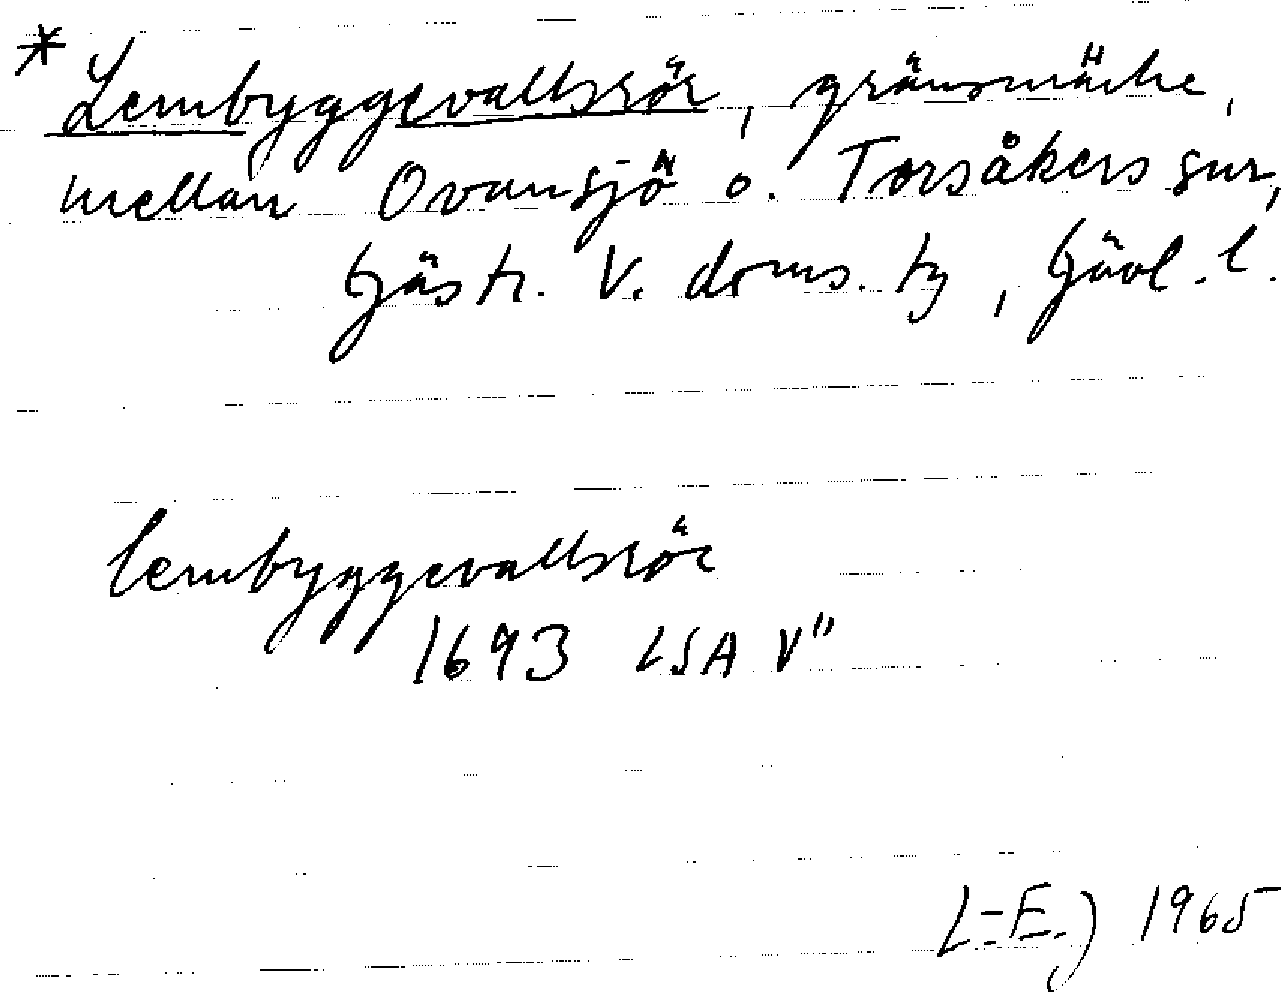 * Lernbyggevallsrör, gränsmärke,
mellan Ovansjö o. Torsåkers snr,
Gästr. V. doms. tg, Gävl. l.
lernbyggevallsrör
1693 LSA V"
L-E.J 1965